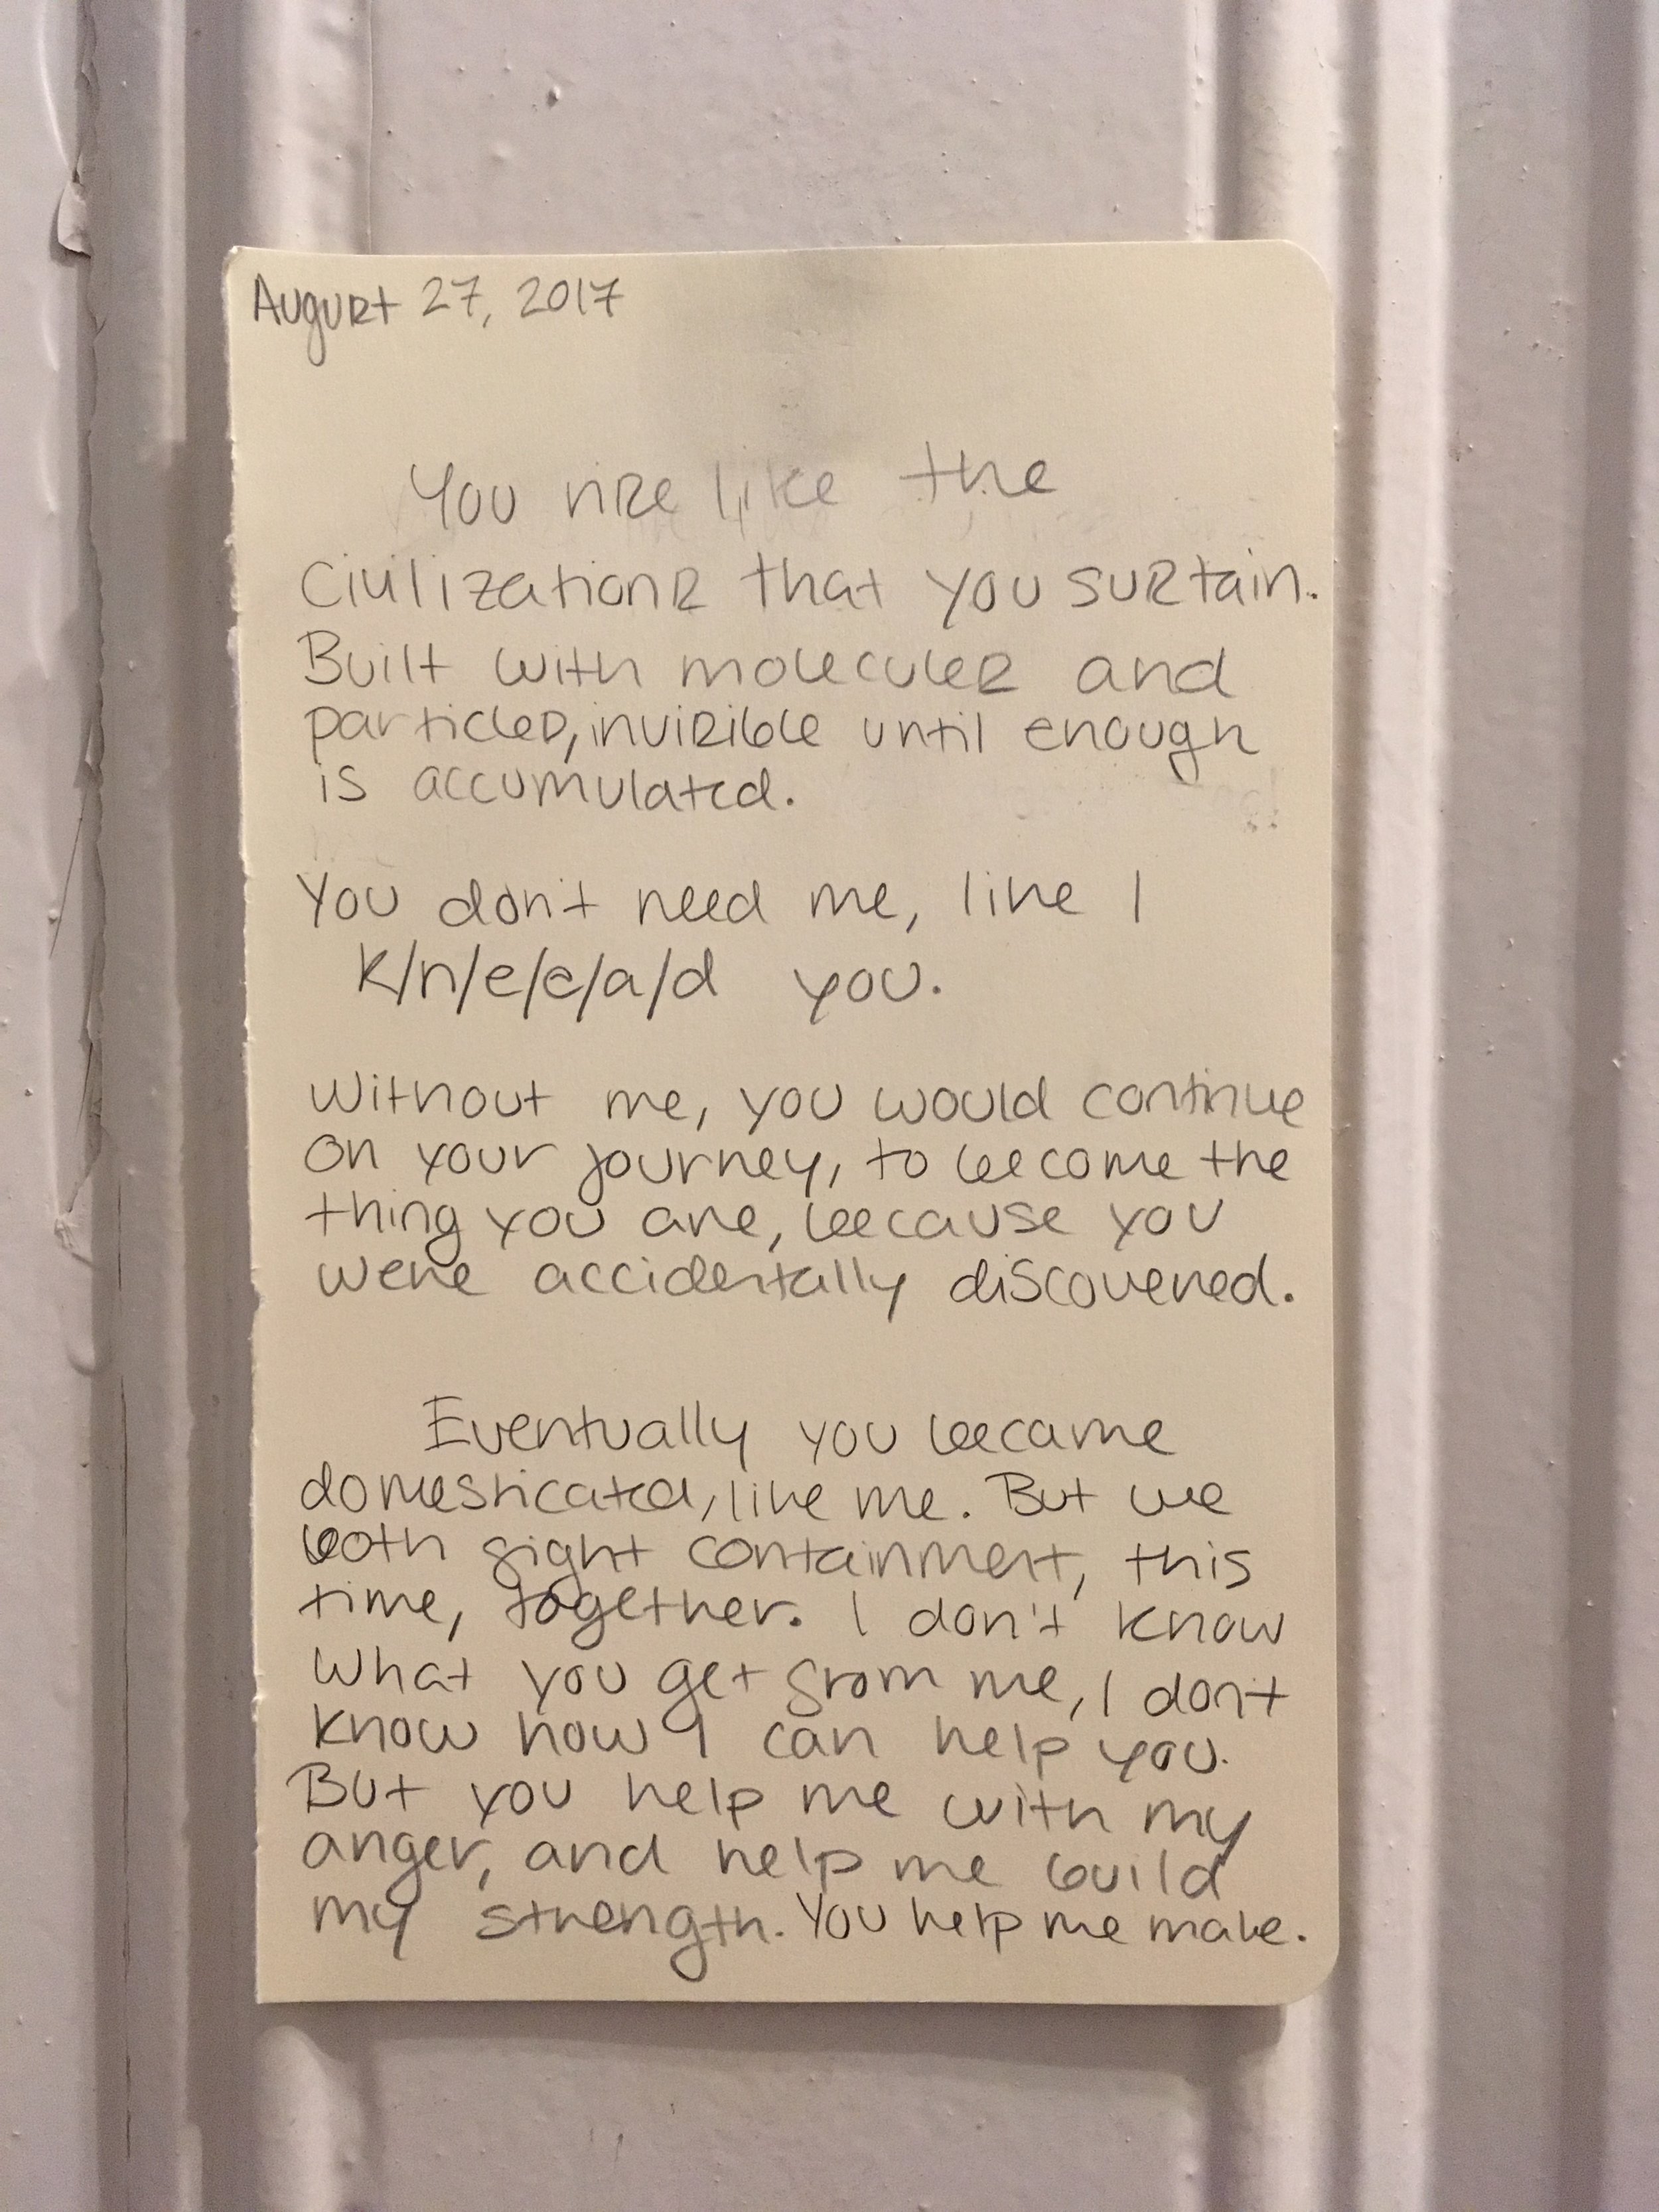 August 27, 2017
You rise like the
civilizations that you sustain.
Built with molecules and
particles, invisible until enough
is accumulated.
You don't need me, like I
k/n/e/e/a/d you.
Without me, you would continue
on your journey, to become the
thing you are, because you
were accidentally discovered.
Eventually you became
domesticated, like me. But we
both fight containment, this
time, together. I don't know
what you get from me, I don't
know how I can help you.
But you help me with my
anger, and help me build
my strength. You help me make.